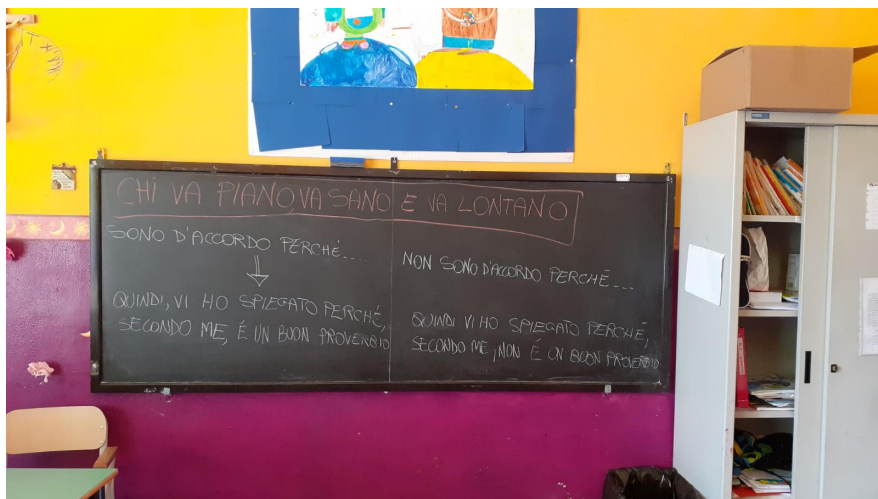 CHI VA PIANO, VA SANO E VA LONTANO
SONO D'ACCORDO PERCHÉ....
QUINDI, VI HO SPIEGATO PERCHÉ,
SECONDO ME, É UN BUON PROVERBIO
NON SONO D'ACCORDO PERCHÉ...
QUINDI VI HO SPIEGATO PERCHÉ,
SECONDO ME, NON É UN BUON PROVERBIO